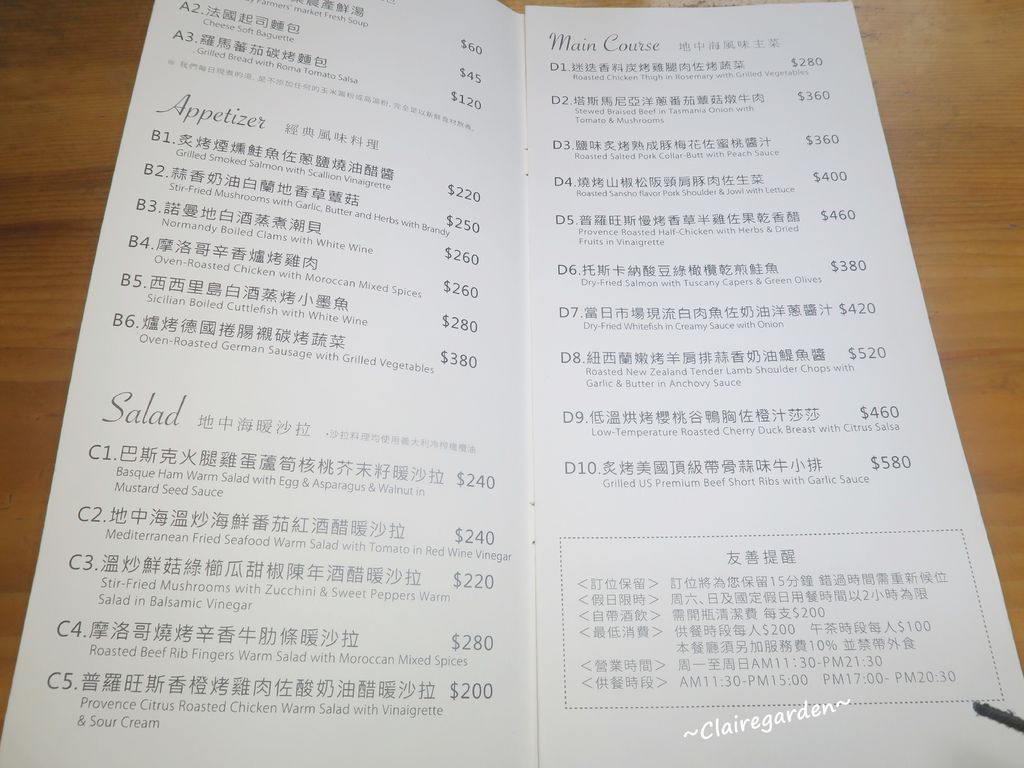 農產鮮湯
Farmers' market Fresh Soup
$60
A2.法國起司麵包
Cheese Soft Baguette
$45
A3.羅馬蕃茄碳烤麵包
Grilled Bread with Roma Tomato Salsa
$120
Appetizer 經典風味料理
B1.炙烤煙燻鮭魚佐蔥鹽燒油醋醬
Grilled Smoked Salmon with Scallion Vinaigrette
$220
B2.蒜香奶油白蘭地香草蕈菇
Stir-Fried Mushrooms with Garlic, Butter and Herbs with Brandy
$250
B3.諾曼地白酒蒸煮潮貝
Normandy Boiled Clams with White Wine
$260
B4.摩洛哥辛香爐烤雞肉
Oven-Roasted Chicken with Moroccan Mixed Spices
$260
B5.西西里島白酒蒸烤小墨魚
Sicilian Boiled Cuttlefish with White Wine
$280
B6.爐烤德國捲腸襯碳烤蔬菜
Oven-Roasted German Sausage with Grilled Vegetables
$380
Salad 地中海暖沙拉 •沙拉料理均使用義大利冷榨橄欖油
C1.巴斯克火腿雞蛋蘆筍核桃芥末籽暖沙拉 $240
Basque Ham Warm Salad with Egg & Asparagus & Walnut in
Mustard Seed Sauce
C2.地中海溫炒海鮮番茄紅酒醋暖沙拉 $240
Mediterranean Fried Seafood Warm Salad with Tomato in Red Wine Vinegar
C3.溫炒鮮菇綠櫛瓜甜椒陳年酒醋暖沙拉 $220
Stir-Fried Mushrooms with Zucchini & Sweet Peppers Warm
Salad in Balsamic Vinegar
C4.摩洛哥燒烤辛香牛肋條暖沙拉 $280
Roasted Beef Rib Fingers Warm Salad with Moroccan Mixed Spices
C5.普羅旺斯香橙烤雞肉佐酸奶油醋暖沙拉 $200
Provence Citrus Roasted Chicken Warm Salad with Vinaigrette
& Sour Cream
Main Course 地中海風味主菜
D1.迷迭香料炭烤雞腿肉佐烤蔬菜 $280
Roasted Chicken Thigh in Rosemary with Grilled Vegetables
D2.塔斯馬尼亞洋蔥番茄蕈菇燉牛肉 $360
Stewed Braised Beef in Tasmania Onion with
Tomato & Mushrooms
D3.鹽味炙烤熟成豚梅花佐蜜桃醬汁 $360
Roasted Salted Pork Collar-Butt with Peach Sauce
D4.燒烤山椒松阪頸肩豚肉佐生菜 $400
Roasted Sansho flavor Pork Shoulder & Jowl with Lettuce
D5.普羅旺斯慢烤香草半雞佐果乾香醋 $460
Provence Roasted Half-Chicken with Herbs & Dried
Fruits in Vinaigrette
D6.托斯卡納酸豆綠橄欖乾煎鮭魚 $380
Dry-Fried Salmon with Tuscany Capers & Green Olives
D7.當日市場現流白肉魚佐奶油洋蔥醬汁 $420
Dry-Fried Whitefish in Creamy Sauce with Onion
D8.紐西蘭嫩烤羊肩排蒜香奶油鯷魚醬 $520
Roasted New Zealand Tender Lamb Shoulder Chops with
Garlic & Butter in Anchovy Sauce
D9.低溫烘烤櫻桃谷鴨胸佐橙汁莎莎 $460
Low-Temperature Roasted Cherry Duck Breast with Citrus Salsa
D10.炙烤美國頂級帶骨蒜味牛小排 $580
Grilled US Premium Beef Short Ribs with Garlic Sauce
友善提醒
<訂位保留> 訂位將為您保留15分鐘 錯過時間需重新候位
<假日限時> 周六、日及國定假日用餐時間以2小時為限
<自帶酒飲> 需開瓶清潔費 每支$200
<最低消費> 供餐時段每人$200 午茶時段每人$100
本餐廳須另加服務費10% 並禁帶外食
<營業時間> 周一至周日AM11:30-PM21:30
<供餐時段> AM11:30-PM15:00 PM17:00- PM20:30
~Clairegarden~